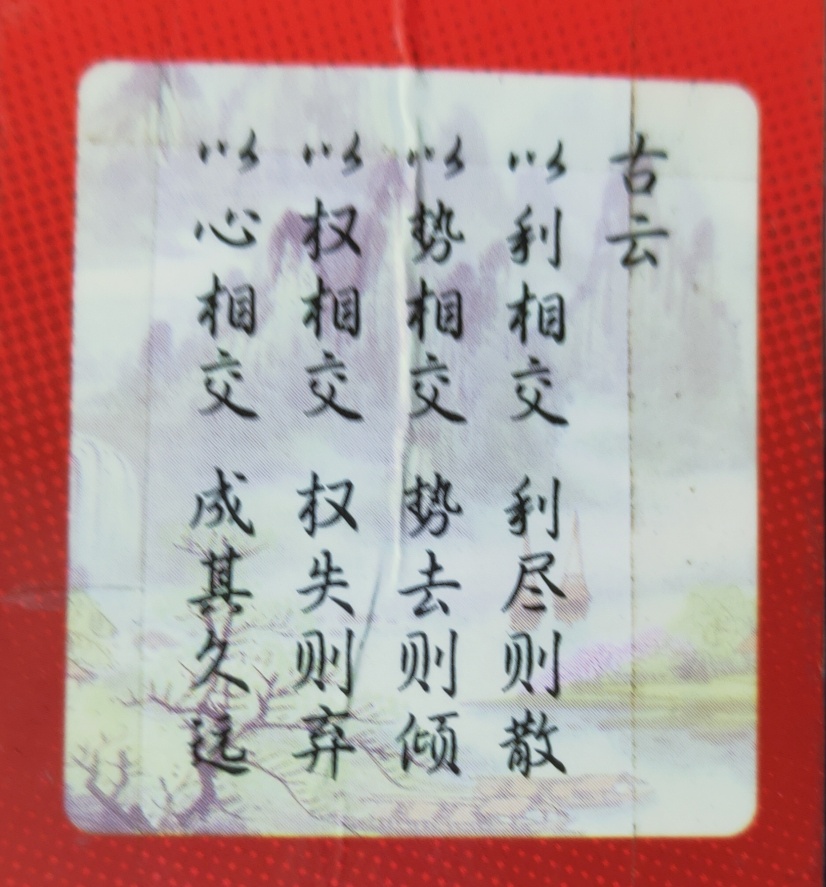 古云
以利相交 利尽则散
以势相交 势去则倾
以权相交 权失则弃
以心相交 成其久远